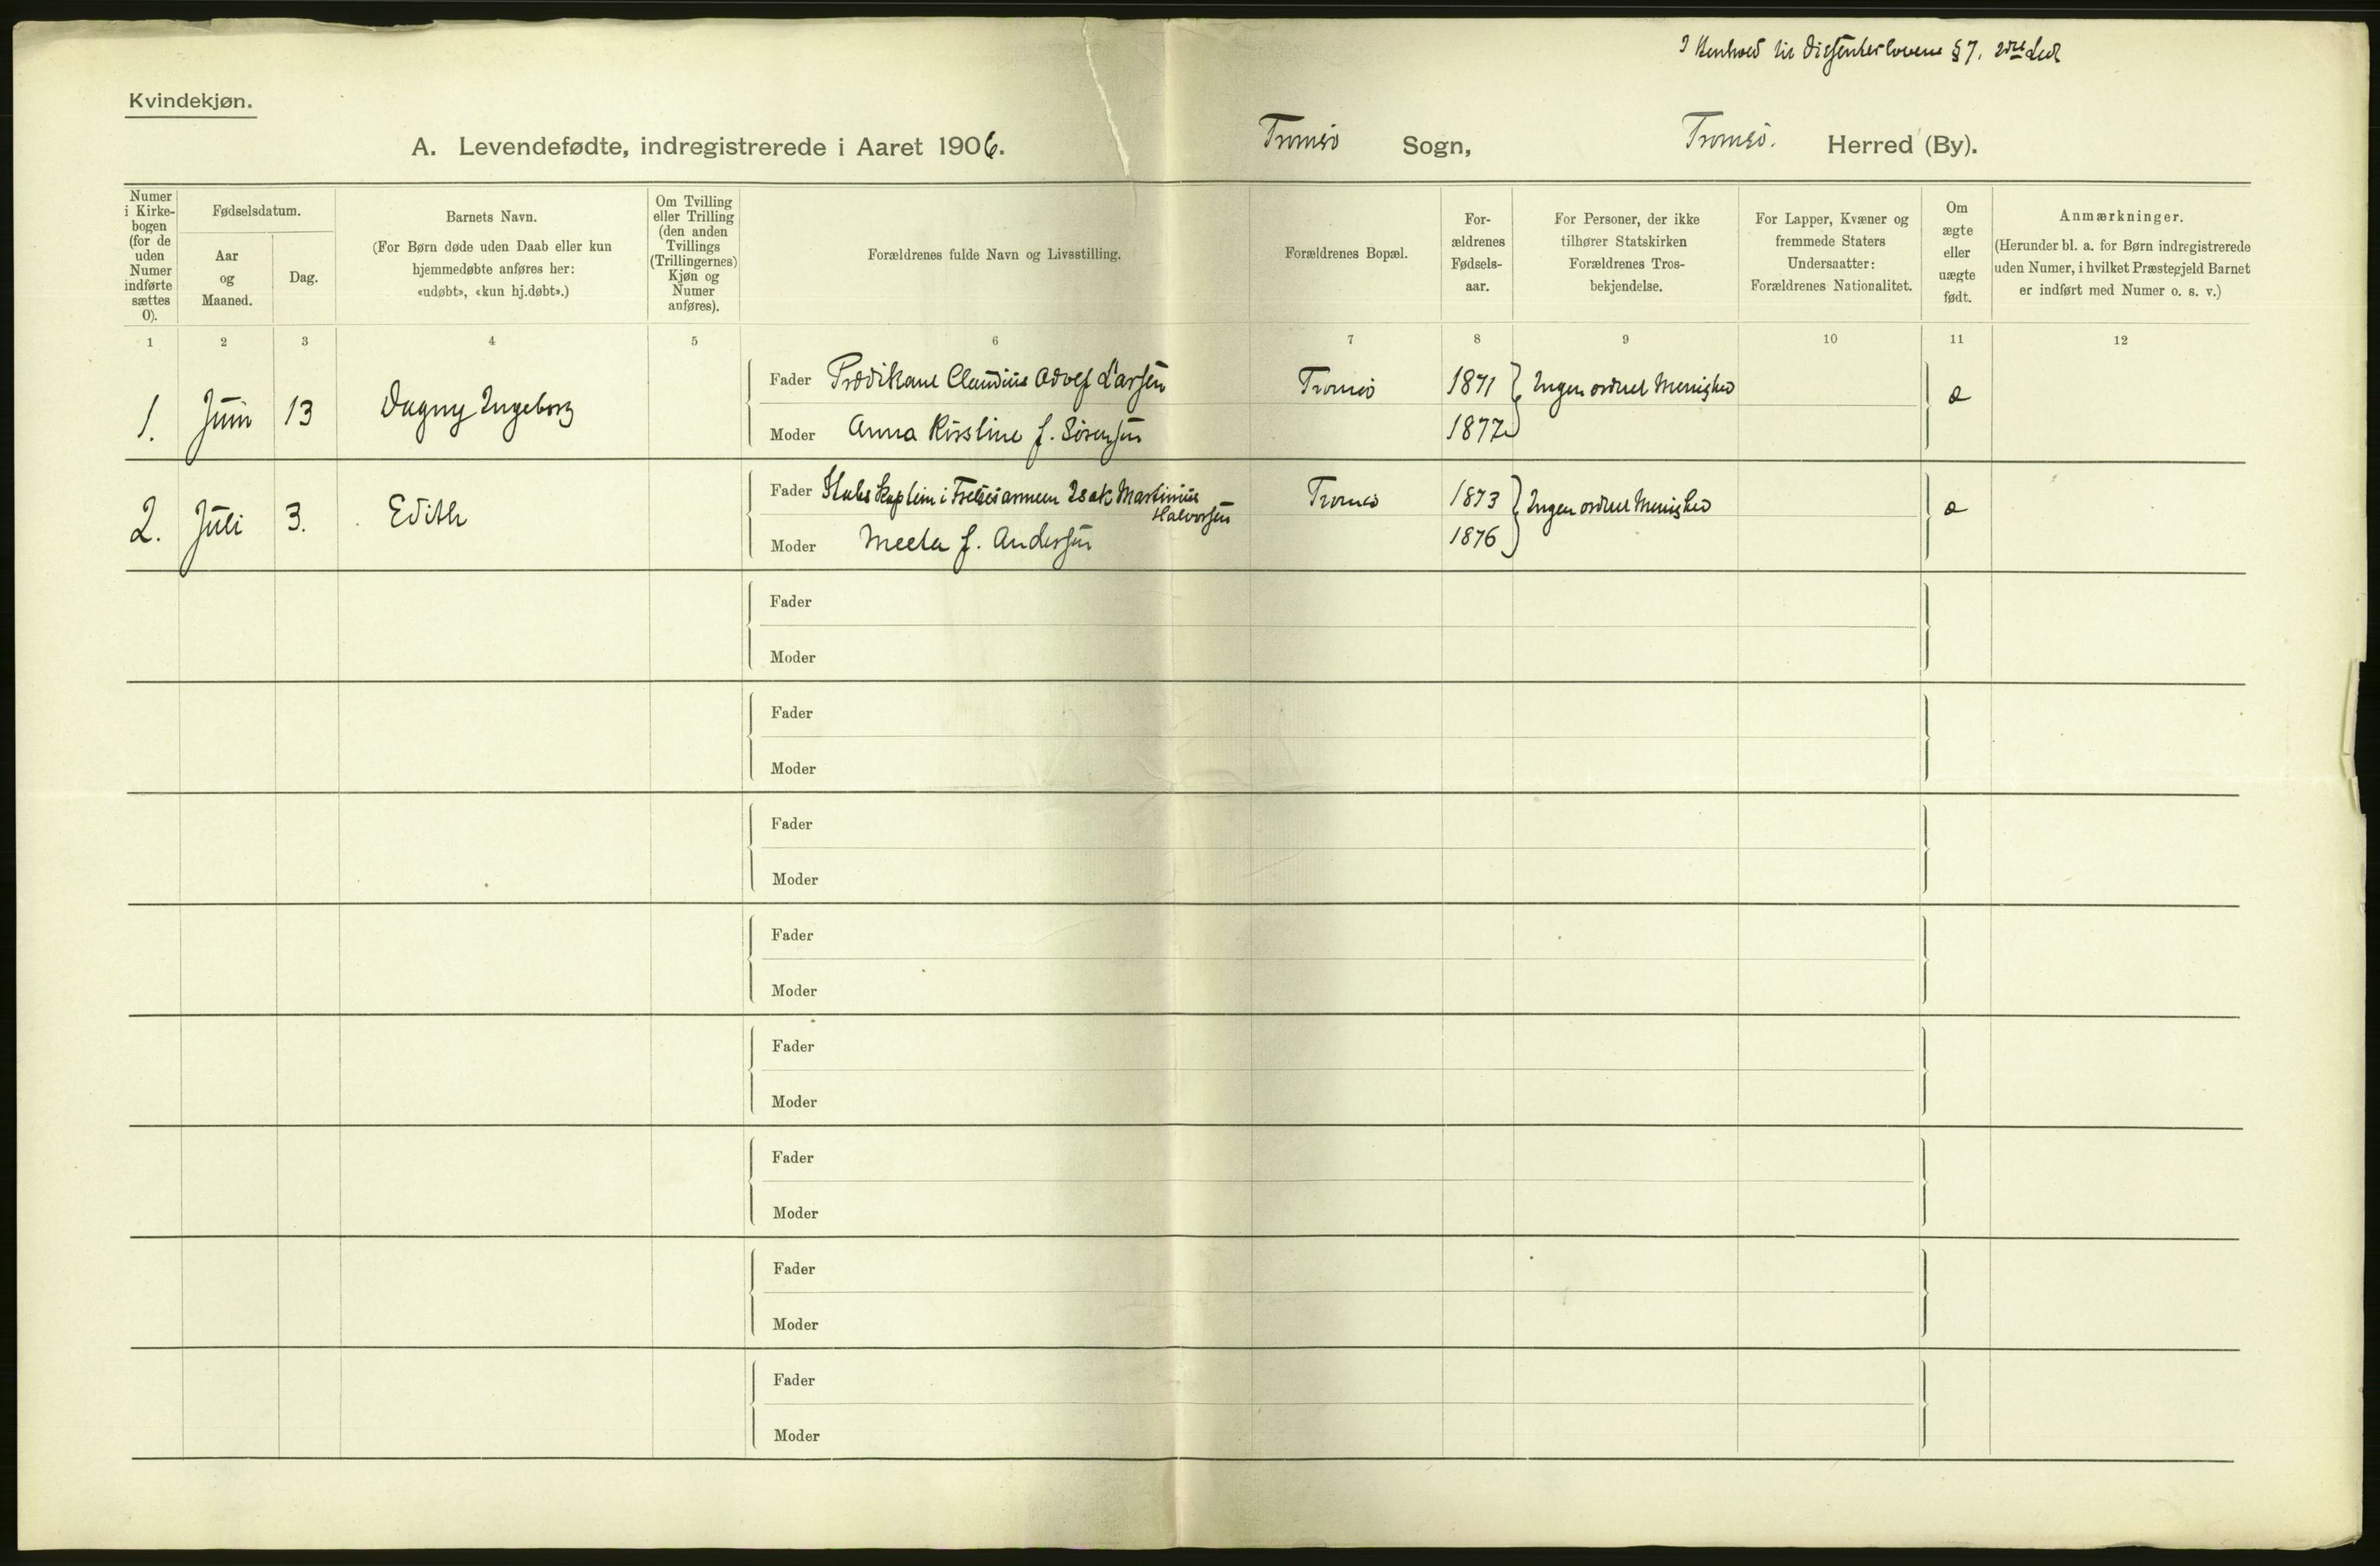 I Henhold til Dissenterlovens § 7. 2det Led
Kvindekjøn.
A. Levendefødte, indregistrerede i Aaret 1906. Tromsø Sogn, Tromsø. Herred (By).
Numer i Kirke-bogen (for de uden Numer indførte sættes 0).
Fødselsdatum.
Aar og Maaned.
Dag.
Barnets Navn.
(For Børn døde uden Daab eller kun
hjemmedøbte anføres her:
«udøbt», «kun hj.døbt».)
Om Tvilling
eller Trilling
(den anden
Tvillings
(Trillingernes)
Kjøn og
Numer
anføres).
Forældrenes fulde Navn og Livsstilling.
Forældrenes Bopæl.
For-
ældrenes
Fødsels-
aar.
For Personer, der ikke
tilhører Statskirken
Forældrenes Tros-
bekjendelse.
For Lapper, Kvæner og
fremmede Staters
Undersaatter:
Forældrenes Nationalitet.
Om
ægte
eller
uægte
født.
Anmærkninger.
(Herunder bl. a. for Børn indregistrerede
uden Numer, i hvilket Præstegjeld Barnet
er indført med Numer o. s. v.)
1 2 3 4 5 6 7 8 9 10 11 12
1. Juni 13 Dagny Ingeborg
Fader Prædikant Claudius Adolf Larsen Tromsø 1871 Ingen ordnet Menighed
Moder Anna Kirstine f. Sørensen 1877
2. Juli 3. Edith
Fader Stabskaptein i Frelsesarmeen Isak Martinius Halvorsen Tromsø 1873 Ingen ordnet Menighed
Moder Meeta f. Andersen 1876
Fader
Moder
Fader
Moder
Fader
Moder
Fader
Moder
Fader
Moder
Fader
Moder
Fader
Moder
Fader
Moder